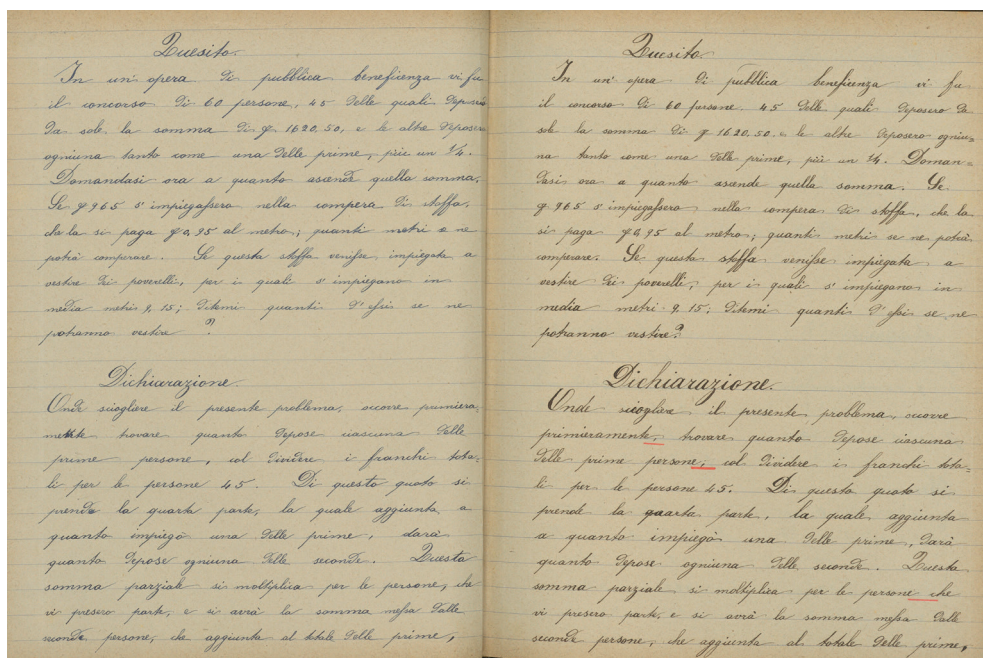 Quesito.
In un' opera di pubblica beneficenza vi fu
il concorso di 60 persone, 45 delle quali deposero
da sole la somma di f 1620,50, e le altre deposero
ogniuna tanto come una delle prime, più un 1/4.
Domandasi ora a quanto ascende quella somma.
Se f 965 s' impiegassero nella compera di stoffa,
che la si paga f 0,95 al metro; quanti metri se ne
potrà comperare. Se questa stoffa venisse impiegata a
vestire dei poverelli, per i quali s' impiegano in
media metri 9,15; ditemi quanti d' essi se ne
potranno vestire?
Dichiarazione.
Onde sciogliere il presente problema, occorre primiera
mente trovare quanto depose ciascuna delle
prime persone, col dividere i franchi tota-
li per le persone 45. Di questo quoto si
prende la quarta parte, la quale aggiunta a
quanto impiegò una delle prime, darà
quanto depose ogniuna delle seconde. Questa
somma parziale si moltiplica per le persone, che
vi presero parte, e si avrà la somma messa dalle
seconde persone, che aggiunta al totale delle prime,
Quesito.
In un' opera di pubblica beneficenza vi fu
il concorso di 60 persone. 45 delle quali deposero da
sole la somma di f 1620,50. e le altre deposero ogniu=
na tanto come una delle prime, più un 1/4. Doman-
dasi ora a quanto ascende quella somma. Se
f 965 s' impiegassero nella compera di stoffa, che la
si paga f 0,95 al metro; quanti metri se ne potrà
comperare. Se questa stoffa venisse impiegata a
vestire dei poverelli, per i quali s' impiegano in
media metri 9,15; ditemi quanti d' essi se ne
potranno vestire?
Dichiarazione.
Onde sciogliere il presente problema, occorre
primieramente, trovare quanto depose ciascuna
delle prime persone, col dividere i franchi tota-
li per le persone 45. Di questo quoto si
prende la quarta parte, la quale aggiunta
a quanto impiegò una delle prime, darà
quanto depose ogniuna delle seconde. Questa
somma parziale si moltiplica per le persone che
vi presero parte, e si avrà la somma messa dalle
seconde persone, che aggiunta al totale delle prime,